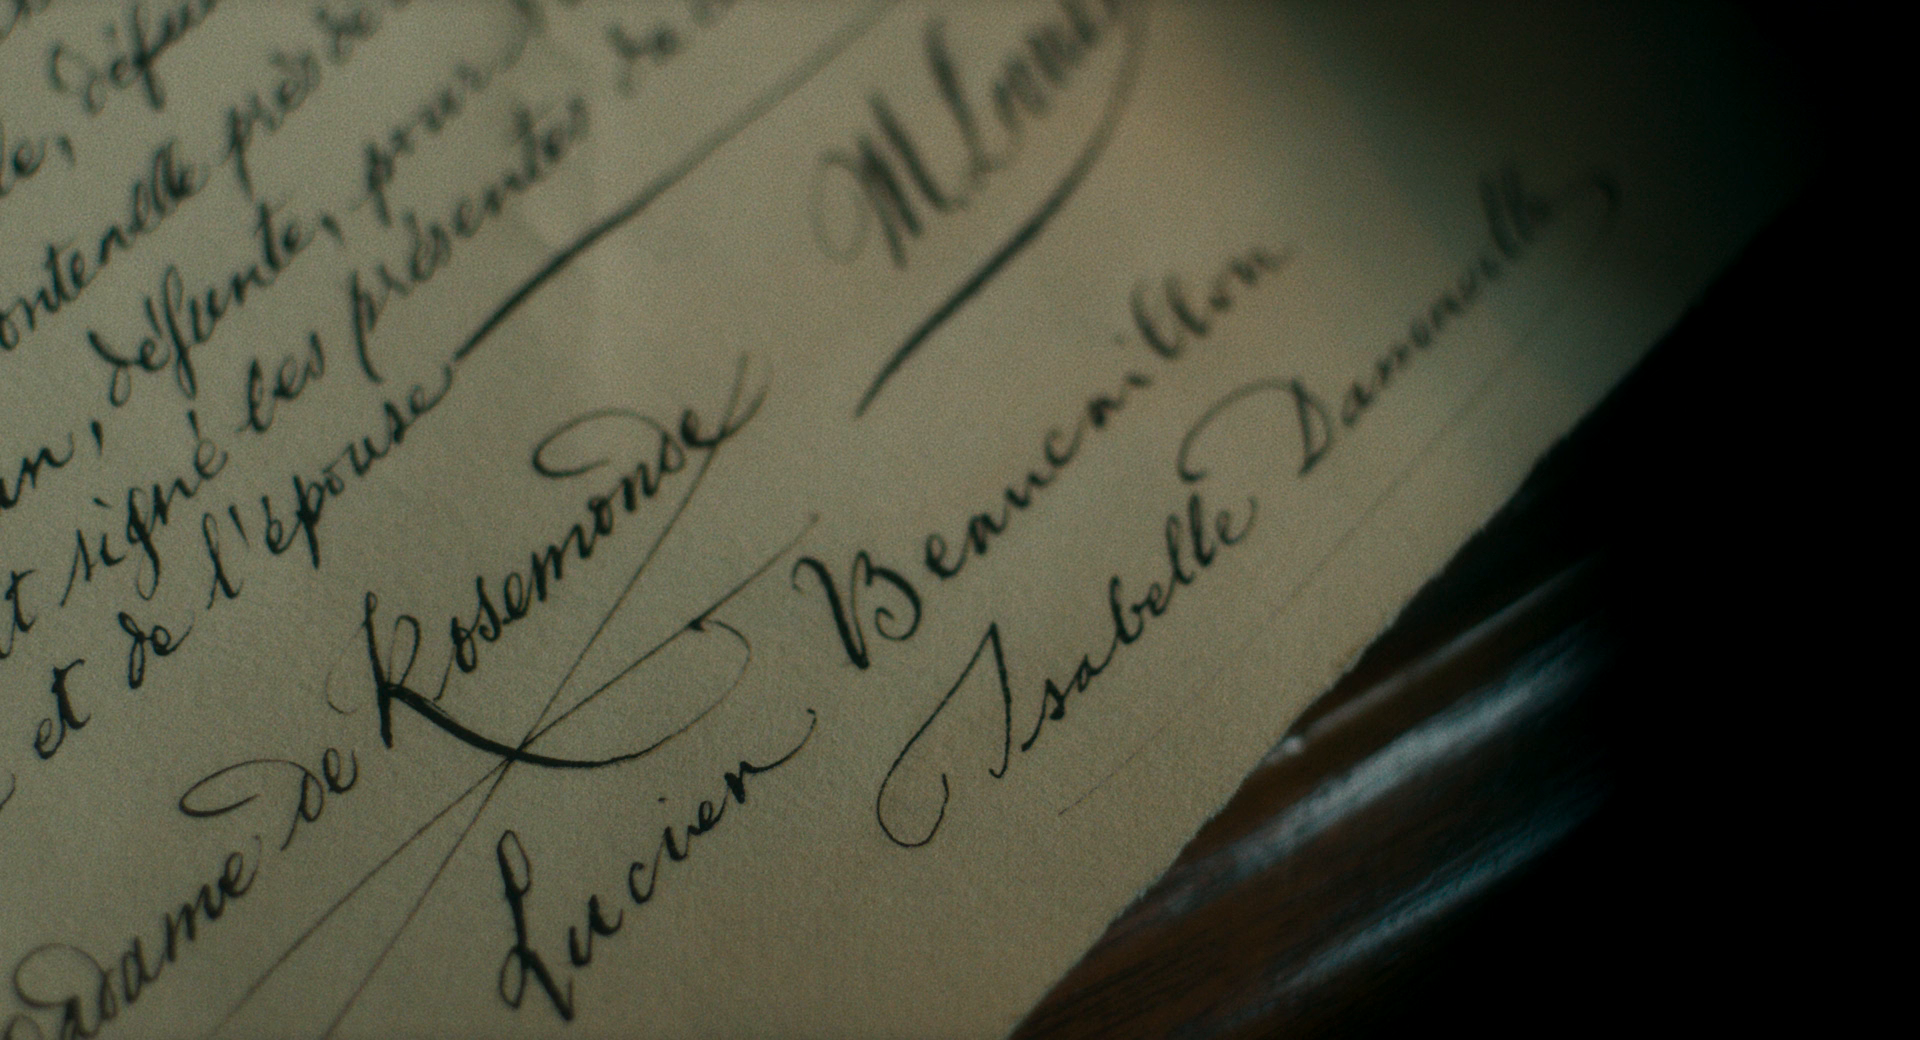 défun
ontenelle près de
un, défunte, pour
t signé les présentes de
et de l'épouse
Madame de Rosemonde
Lucien Beaucaillon
Isabelle Damonville